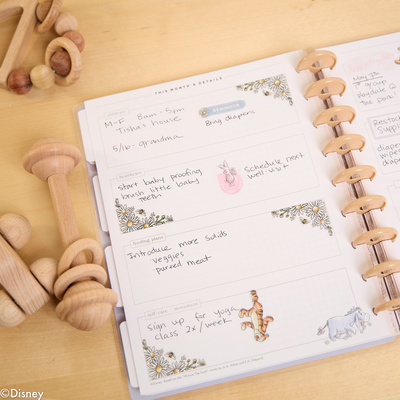 THIS MONTH'S DETAILS
M-F 8am-5pm
Tisha's House
5/16-grandma
Buy diapers
start baby proofing
brush little baby
teeth
Schedule next
well visit
feeding plans
Introduce more solids
veggies
pureed meat
sign up for yoga
class 2x/week
May 25
group
Playdate @
the park!
Restock
Supplies
diapers
wipes
diaper
©Disney